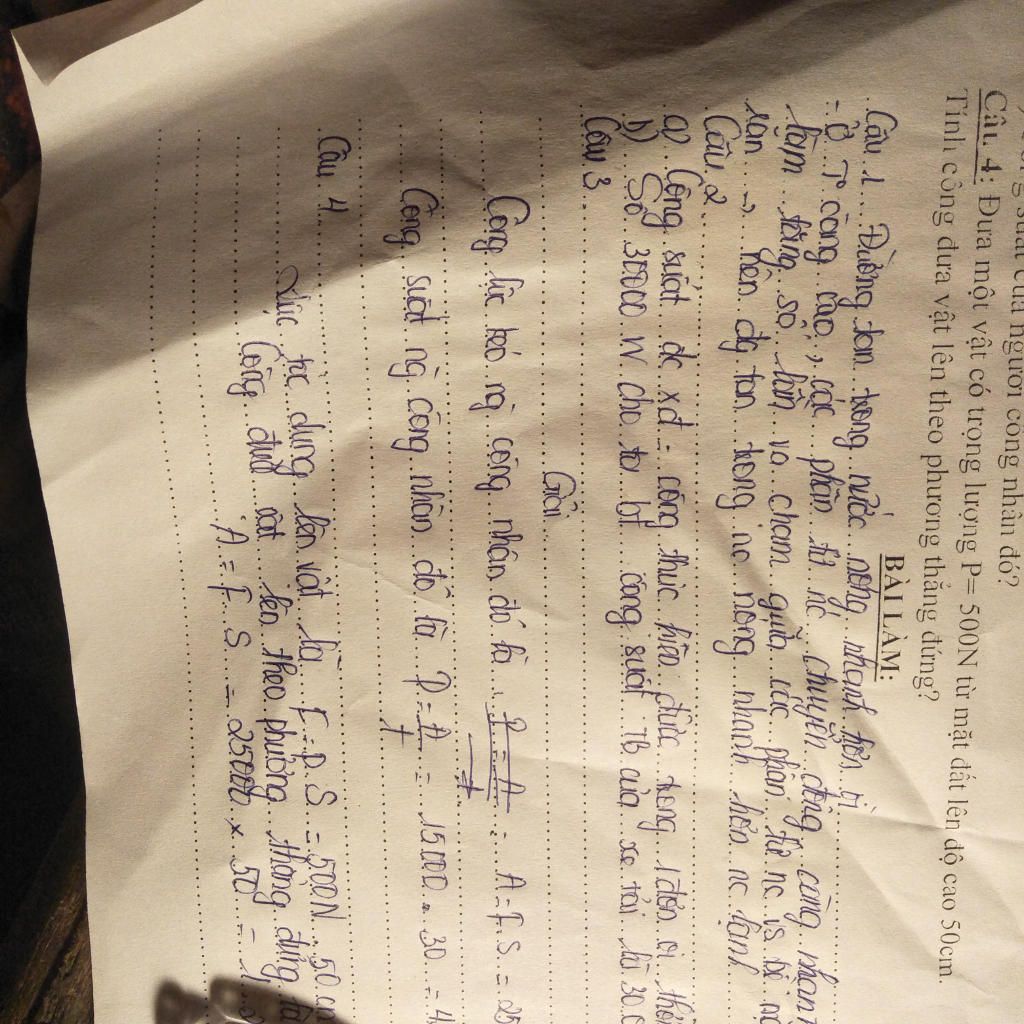 suất của người công nhân đó?
Câu 4: Đưa một vật có trọng lượng P= 500N từ mặt đất lên độ cao 50cm.
Tính công đưa vật lên theo phương thẳng đứng?
BÀI LÀM:
Câu 1 Đường tan trong nước nóng nhanh hơn vì
- ở T° càng cao, các phân tử nc chuyển động càng nhanh
làm tăng số lần va chạm giữa các phân tử nc vs
tan → nên đg tan trong nc nóng nhanh hơn nc lạnh
Câu 2
a) Công suất đc xđ = công thực hiện được trong 1 đơn vị
b) Số 30000 W cho ta bt công suất Tb của xe tải là 30.0
Câu 3
Giải
Công lực kéo ng công nhân đó là P = A/t - A = F. S = 25
Công suất ng công nhân đó là P = A/t = 15000 . 30 = 4
Câu 4
Lực tác dụng lên vật là F = P. S = 500N . 50 cm
Công đưa vật lên theo phương thẳng đứng là
A = F. S = 25000 × 50 =